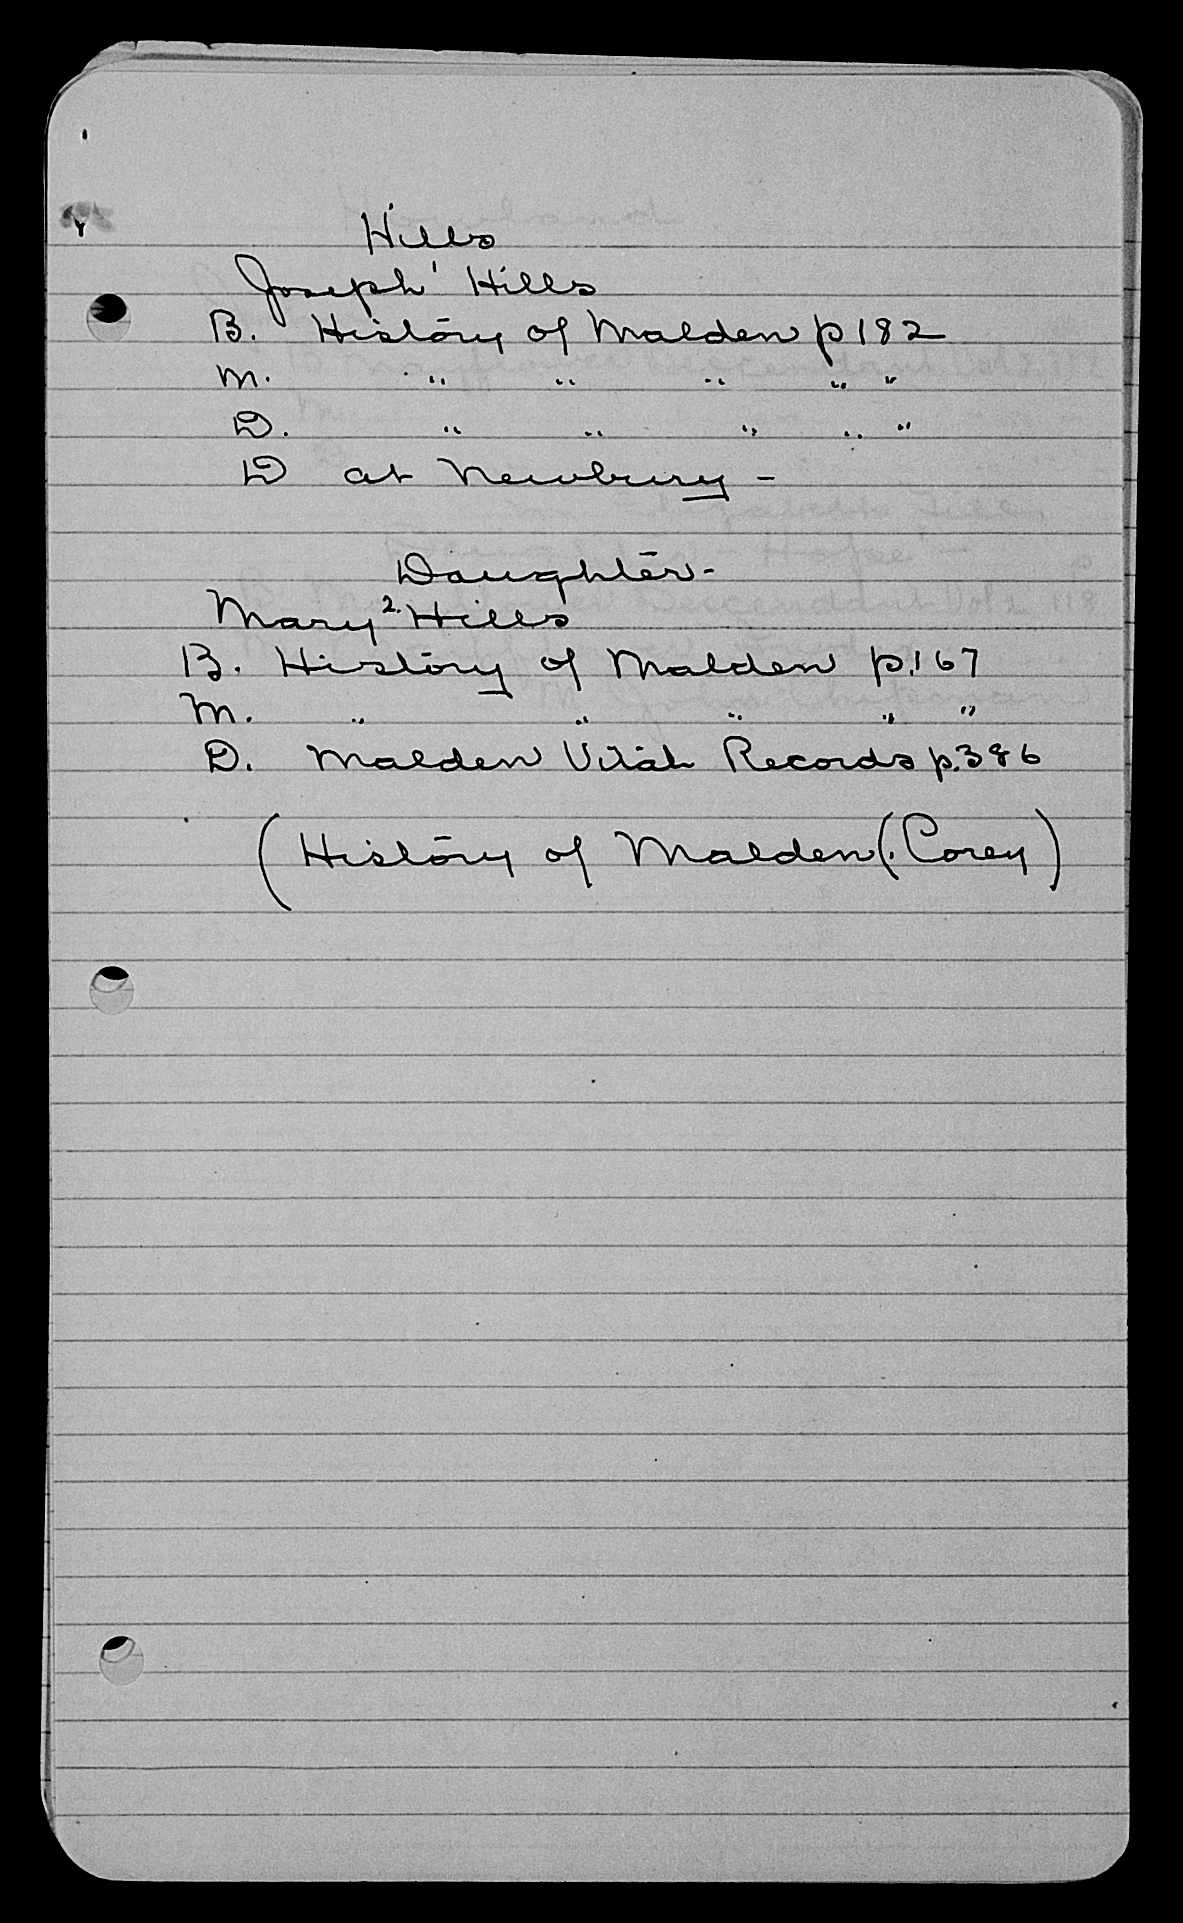 Hills
Joseph¹ Hills
B. History of Malden p 182
M. " " " " "
D. " " " " "
D at Newbury -
Daughter -
Mary². Hills
B. History of Malden p. 167
M. " " " " "
D. Malden Vital Records p. 386
(History of Malden (. Corey)